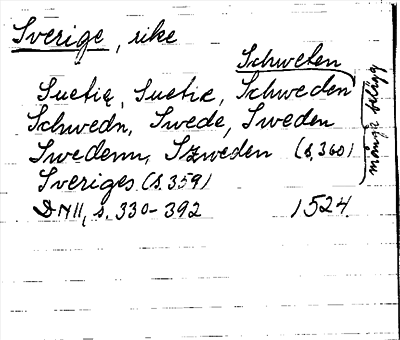 Sverige, rike
Schweten
Suetię, Suetie, Schweden
Schwedn, Swede, Sweden
Swedenn, Szweden (s. 360)
Sveriges (s. 359)
många belägg
DN II, s. 330-392 1524.